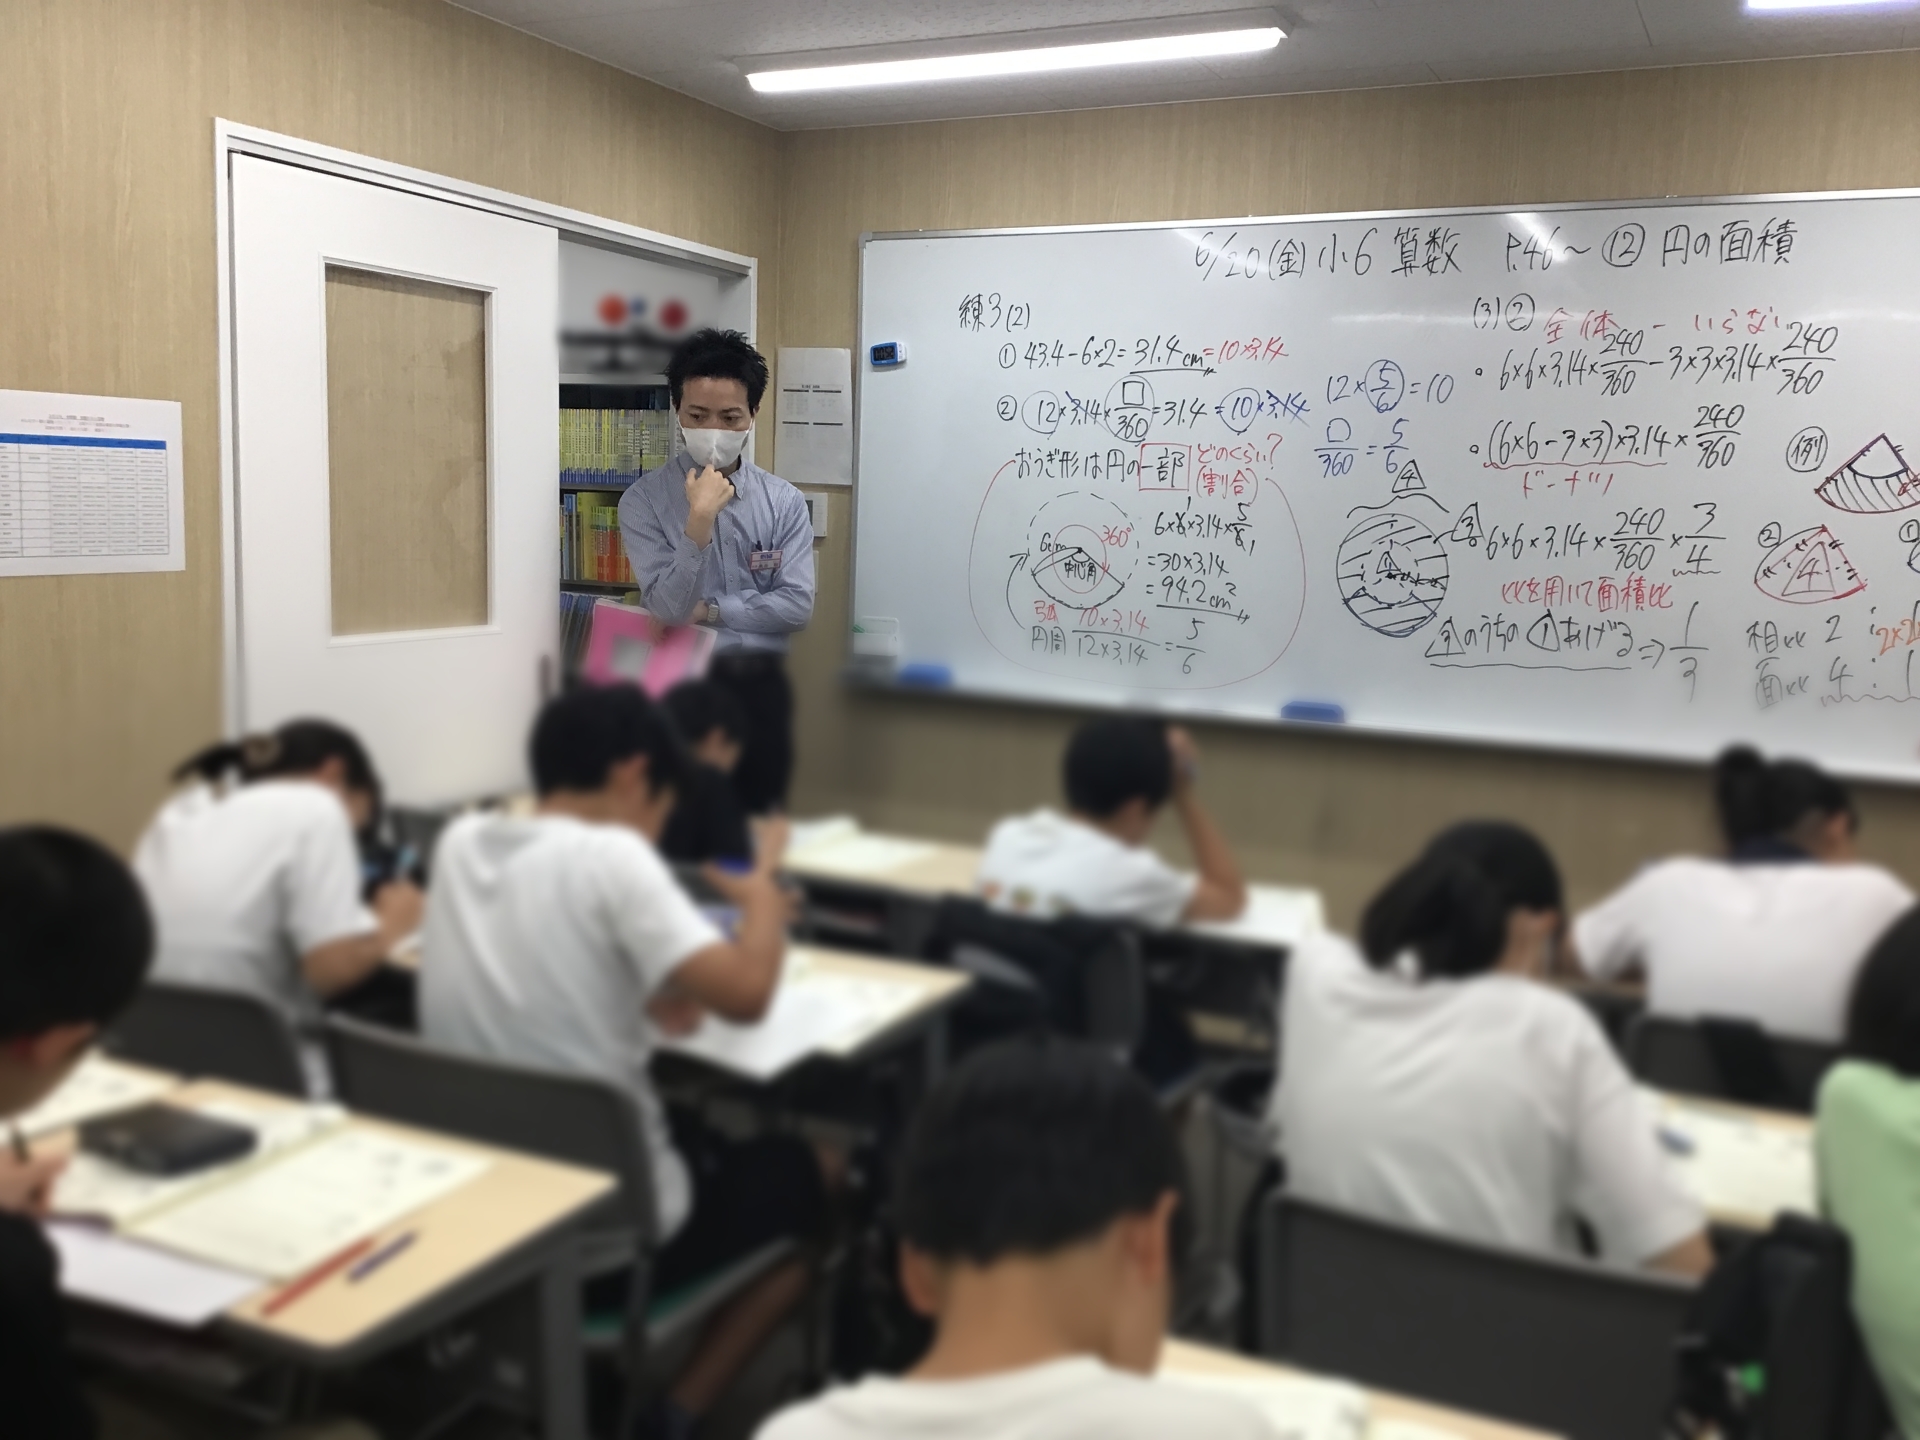 6/20(金) 小6 算数 P.46～ ⑫ 円の面積
練3(2)
① 43.4-6×2=31.4cm=10×3.14
② 12×3.14×□/360=31.4=10×3.14
12×5/6=10
□/360=5/6
おうぎ形は円の一部 どのくらい?
(割合)
6cm 中心角 360°
6×6×3.14×5/6
=30×3.14
=94.2cm²
弧 10×3.14
円周 12×3.14
=5/6
(3)② 全体 - いらない
6×6×3.14×240/360-3×3×3.14×240/360
(6×6-3×3)×3.14×240/360
ドーナツ
④
③
①
6×6×3.14×240/360×3/4
比を用いて面積比
④のうちの①あげる⇒1/3
例
②
4
①
相比 2 :
面比 4 : 1